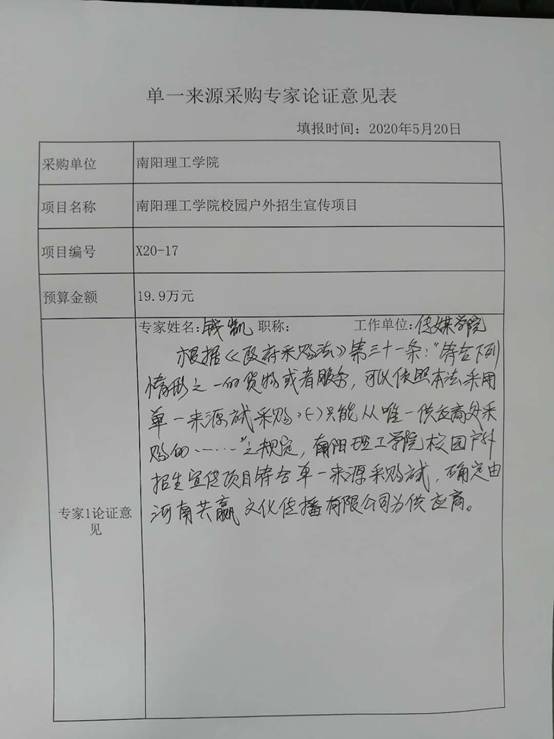 单一来源采购专家论证意见表
填报时间：2020年5月20日
采购单位 南阳理工学院
项目名称 南阳理工学院校园户外招生宣传项目
项目编号 X20-17
预算金额 19.9万元
专家姓名:钱凯 职称: 工作单位:传媒学院
根据《政府采购法》第三十一条："符合下列
情形之一的货物或者服务，可以依照本法采用
单一来源方式采购：(一)只能从唯一供应商处采
购的……"之规定，南阳理工学院校园户外
招生宣传项目符合单一来源采购方式，确定由
河南共赢文化传播有限公司为供应商。
专家1论证意
见